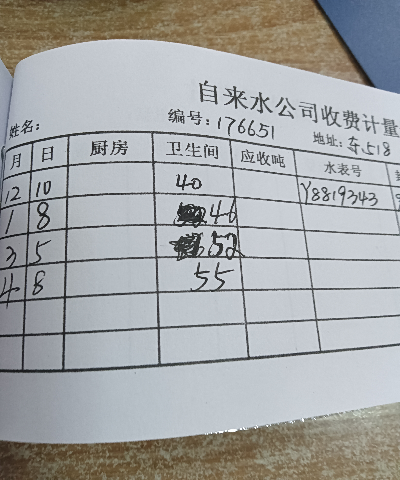 自来水公司收费计量
姓名: 编号: 176651 地址: 东.518
月 日 厨房 卫生间 应收吨 水表号
12 10 40 Y8819343
1 8 46
3 5 52
4 8 55